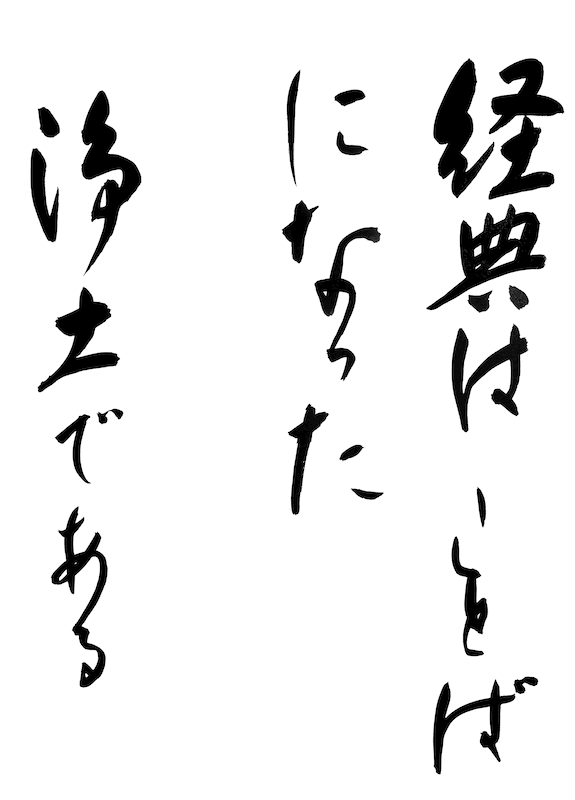 経典はことば
になった
浄土である